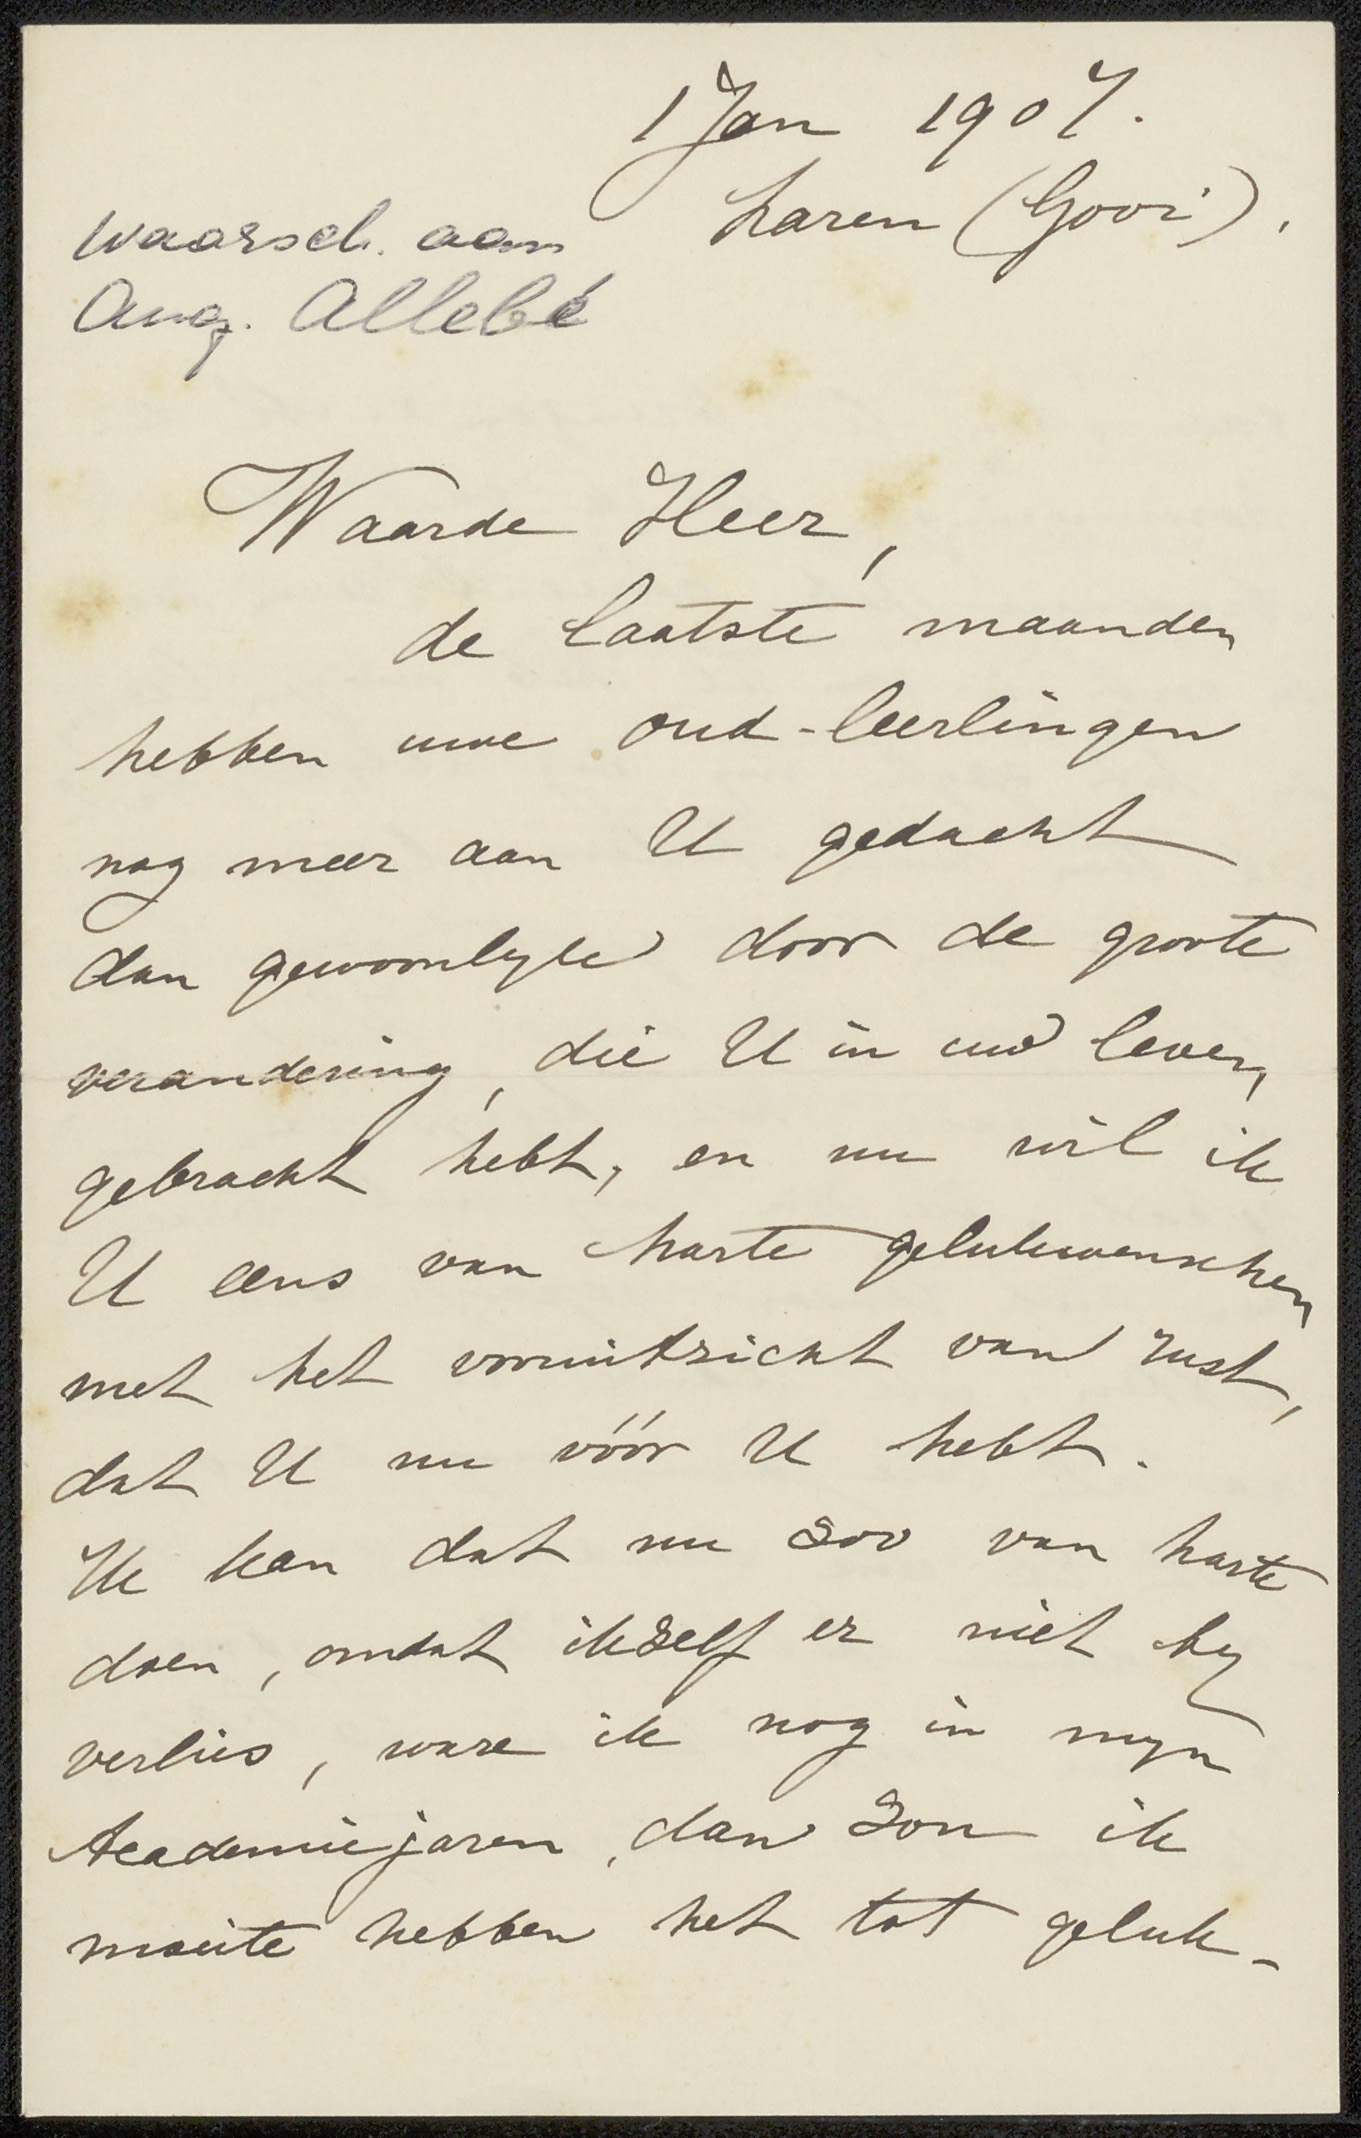 1 Jan 1907.
Laren (Gooi).
waarsch. aan
Aug. Allebé
Waarde Heer,
de laatste maanden
hebben uwe oud-leerlingen
nog meer aan U gedacht
dan gewoonlyk door de groote
verandering, die U in uw leven
gebracht hebt, en nu wil ik
U eens van harte gelukwenschen
met het vooruitzicht van rust,
dat U nu vóór U hebt.
Ik kan dat nu zoo van harte
doen, omdat ikzelf er niet by
verlies, ware ik nog in myn
Academiejaren, dan zou ik
moeite hebben het tot geluk-